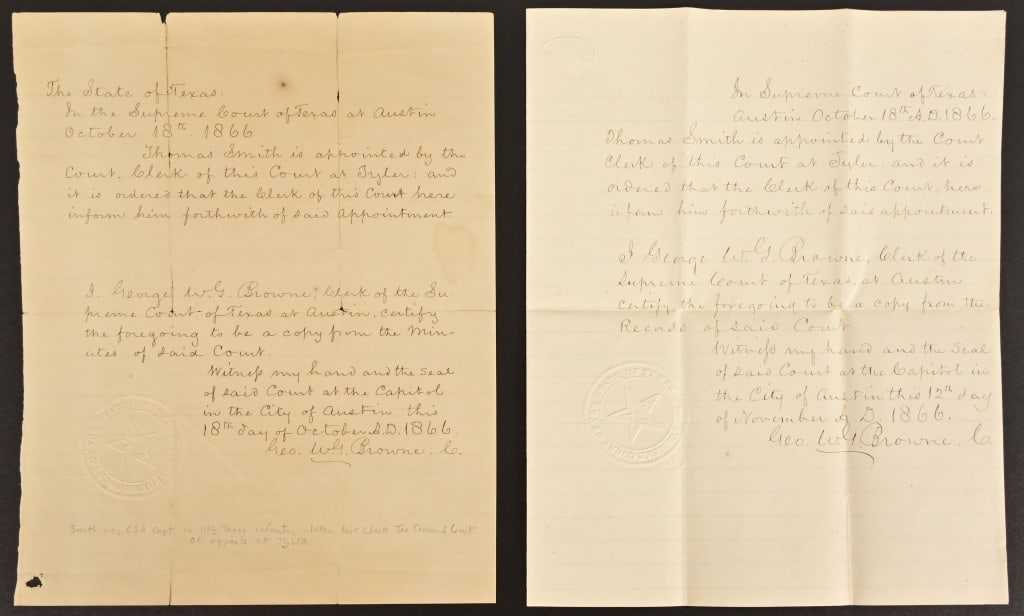 The State of Texas:
In the Supreme Court of Texas at Austin
October 18th. 1866
Thomas Smith is appointed by the
Court. Clerk of this Court at Tyler: and
it is ordered that the Clerk of this Court here
inform him forthwith of said Appointment.
I. George W. G. Browne; Clerk of the Su-
preme Court of Texas at Austin, certify
the foregoing to be a copy from the Min-
utes of said Court.
Witness my hand and the seal
of said Court at the Capitol
in the City of Austin, this
18th day of October A.D. 1866.
Geo. W. G. Browne. C.
Smith was CSA Capt in Texas Infantry Clerk Court
of Appeals at Tyler
In Supreme Court of Texas:
Austin. October 18th A.D. 1866.
Thomas Smith is appointed by the Court
Clerk of this Court at Tyler: and it is
ordered that the Clerk of this Court, here
inform him forthwith of said appointment.
I George W. G. Browne, Clerk of the
Supreme Court of Texas, at Austin
certify the foregoing to be a copy from the
Records of said Court
Witness my hand and the Seal
of said Court at the Capitol in
the City of Austin this 12th day
of November A.D. 1866.
Geo. W. G. Browne. C.